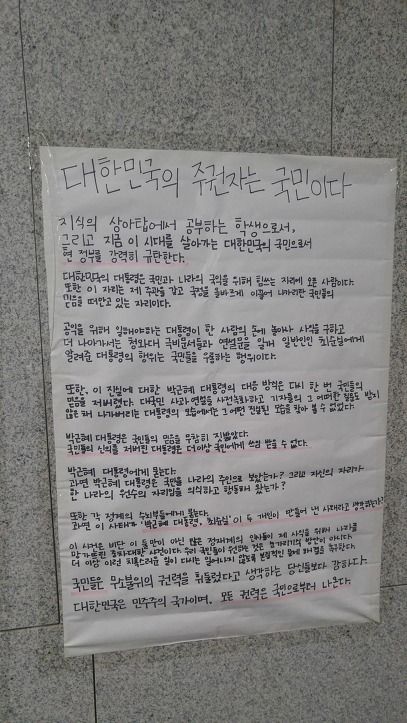 대한민국의 주권자는 국민이다
지식의 상아탑에서 공부하는 학생으로서,
그리고 지금 이 시대를 살아가는 대한민국의 국민으로서
현 정부를 강력히 규탄한다.
대한민국의 대통령은 국민과 나라의 국익을 위해 힘쓰는 자리에 오른 사람이다.
또한 이 자리는 제 주관을 갖고 국정을 올바르게 이끌어 나가리란 국민들의
믿음을 떠안고 있는 자리이다.
공익을 위해 일해야하는 대통령이 한 사람의 손에 놀아나 사익을 추구하고
더 나아가서는 청와대 국비문서들과 연설문을 일개 일반인인 최순실에게
알려준 대통령의 행위는 국민들을 우롱하는 행위이다.
또한, 이 진실에 대한 박근혜 대통령의 대응 방식은 다시 한 번 국민들의
믿음을 저버렸다. 대국민 사과 연설을 사전녹화하고 기자들의 그 어떠한 질문도 받지
않은 채 나가버리는 대통령의 모습에서는 그 어떤 진실된 모습을 찾아 볼 수 없었다.
박근혜 대통령은 국민들의 믿음을 무참히 짓밟았다.
국민들의 신의를 저버린 대통령은 더 이상 국민에게 쓰임 받을 수 없다.
박근혜 대통령에게 묻는다.
과연 박근혜 대통령은 국민을 나라의 주인으로 보았는가? 그리고 자신의 자리가
한 나라의 원수의 자리임을 의식하고 행동해 왔는가?
또한 각 정계의 수뇌부들에게 묻는다.
과연 이 사태가 '박근혜 대통령, 최순실' 이 두 개인이 만들어 낸 사태라고 생각하는가?
이 사건은 비단 이 둘만이 아닌 많은 정재계의 인사들이 제 사익을 위해 나라를
망가뜨린 사건이다. 우리 국민들이 원하는 것은 방안이 아니다.
더 이상 이런 치욕스러운 일이 다시는 일어나지 않도록 본질적인 문제 해결을 촉구한다.
국민들은 무소불위의 권력을 휘둘렀다고 생각하는 당신들보다 강하다.
대한민국은 민주주의 국가이며, 모든 권력은 국민으로부터 나온다.